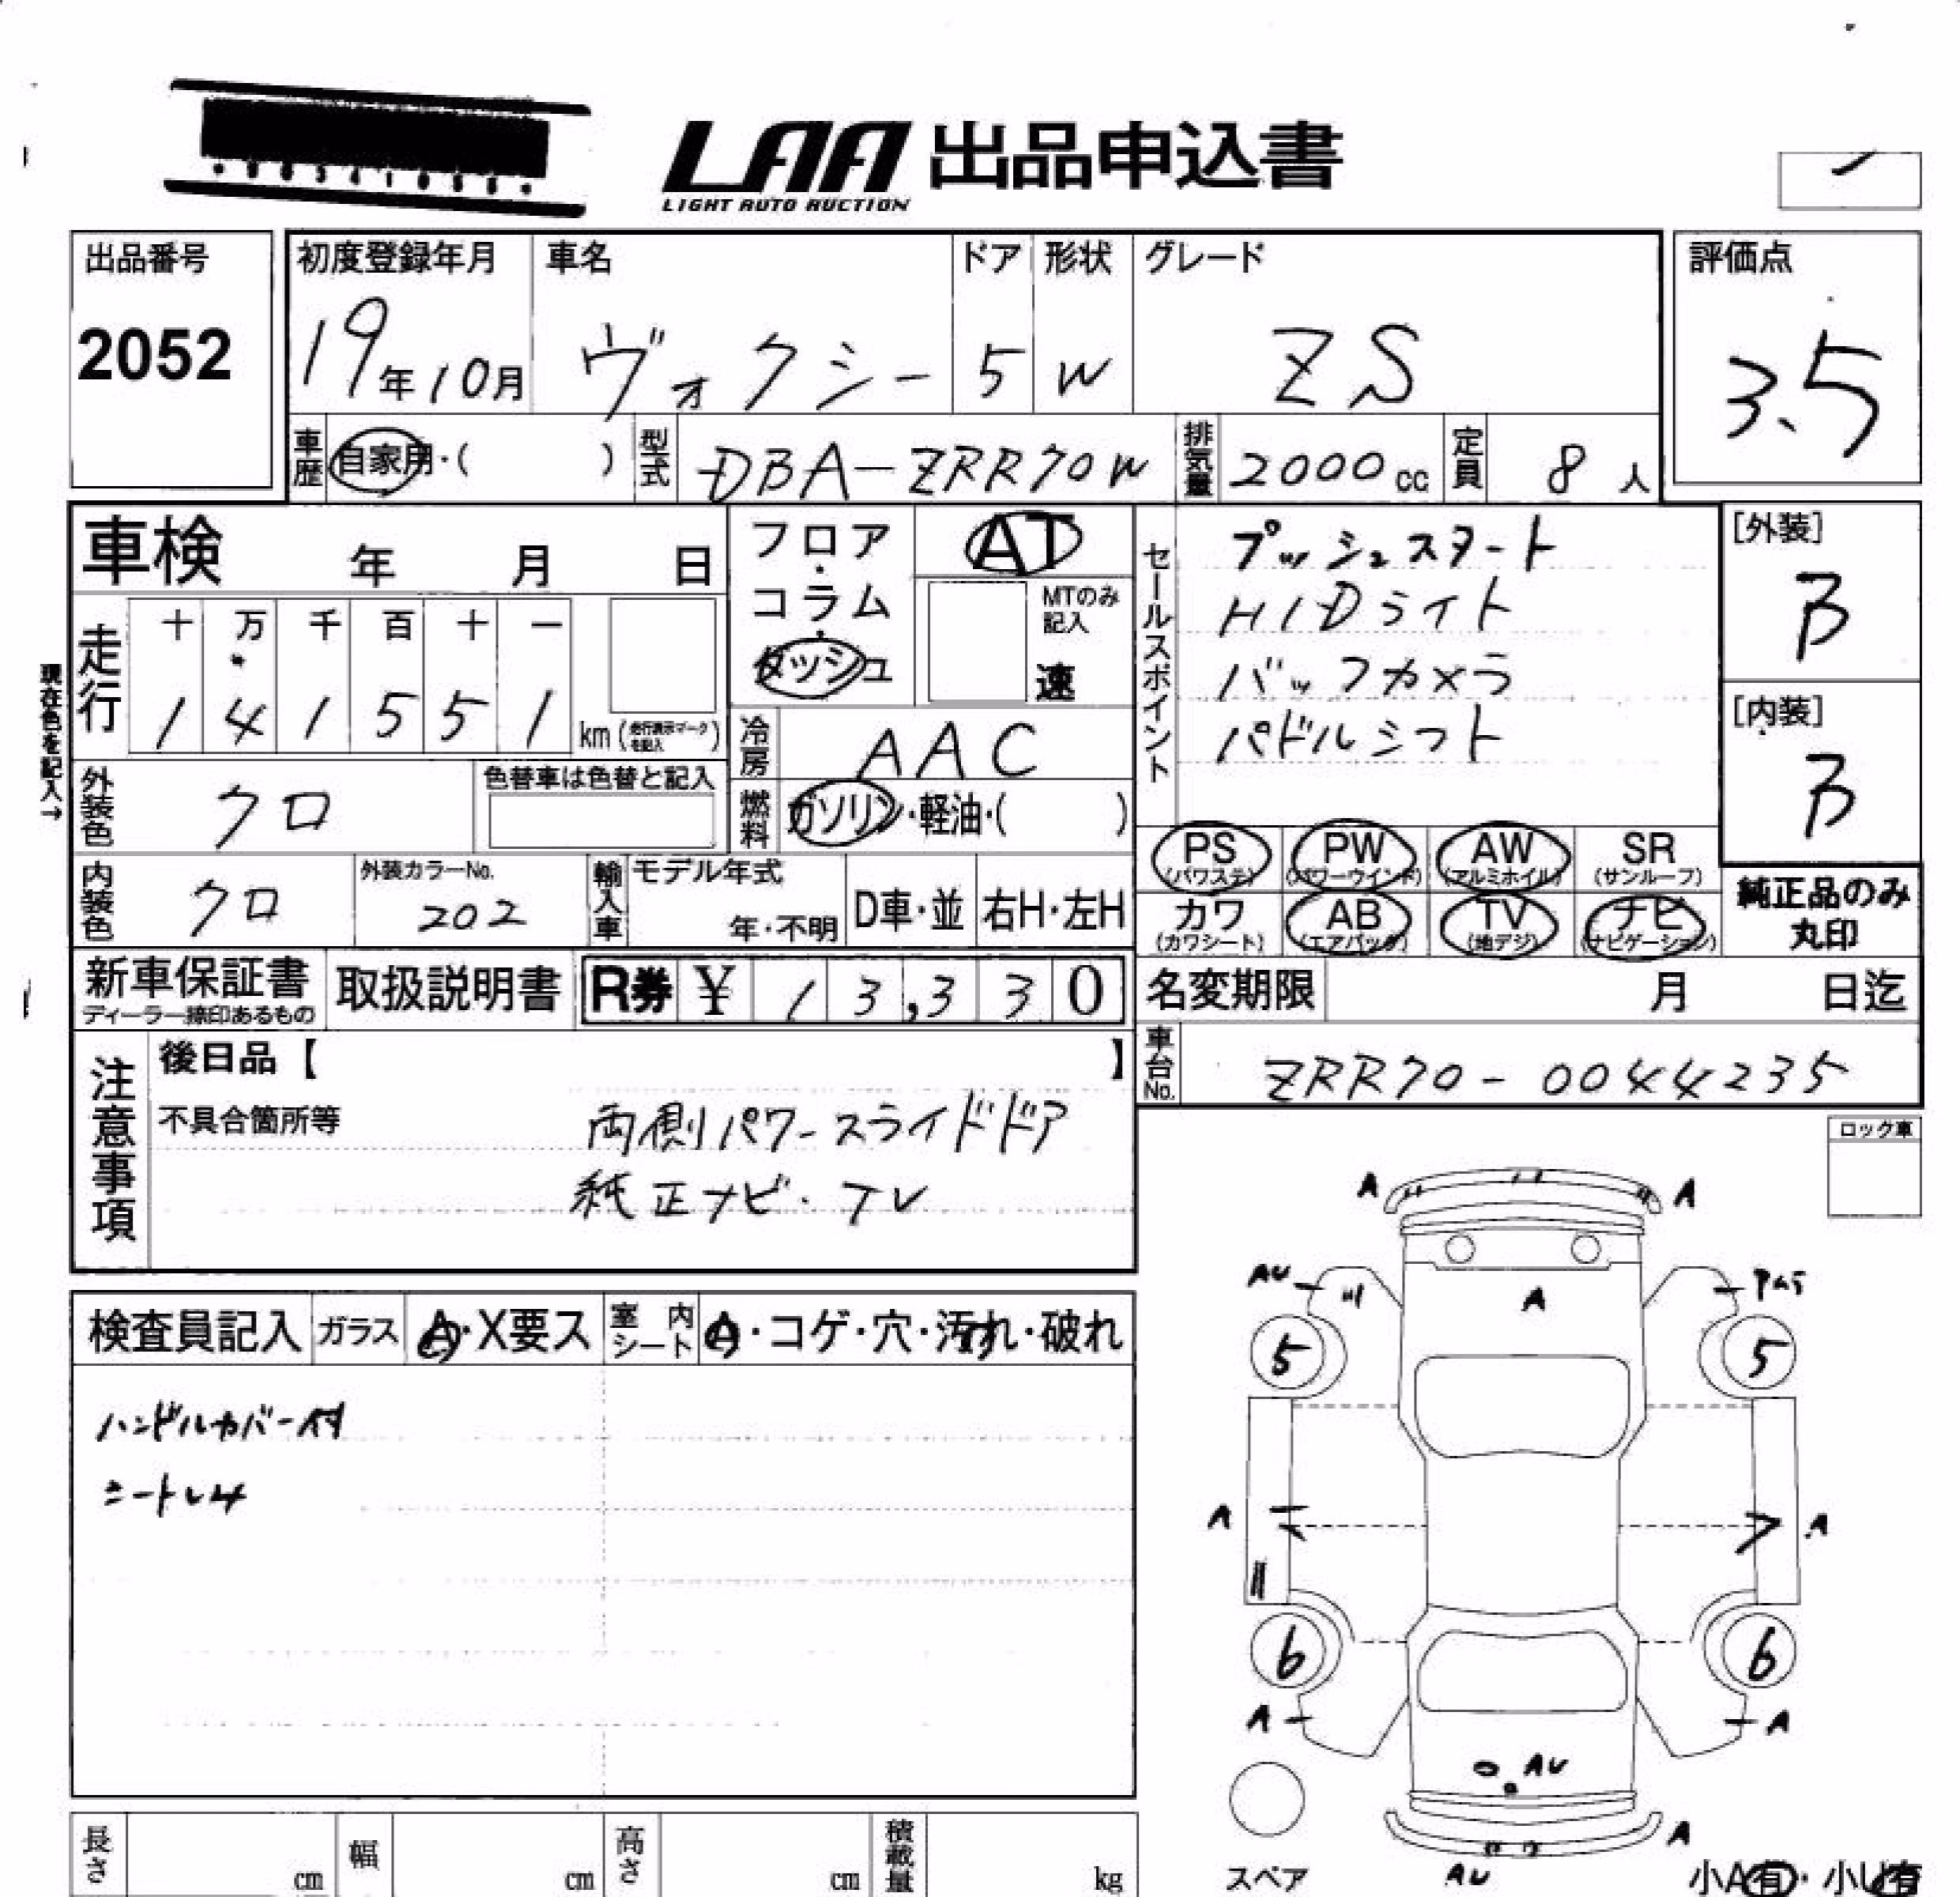 LAA 出品申込書
LIGHT AUTO AUCTION
出品番号
2052
初度登録年月
19年10月
車名
ヴォクシー
ドア
5
形状
W
グレード
ZS
評価点
3.5
車歴 自家用・( )
型式 DBA-ZRR70W
排気量 2000cc
定員 8人
車検 年 月 日
フロア・コラム・ダッシュ
AT
MTのみ記入
速
セールスポイント
プッシュスタート
HIDライト
バックカメラ
パドルシフト
[外装]
B
[内装]
B
現在色を記入→
走行
十 万 千 百 十 一
1 4 1 5 5 1 km (走行表示マークを記入)
冷房 AAC
外装色 クロ
色替車は色替と記入
燃料 ガソリン・軽油・( )
PS (パワステ)
PW (パワーウインド)
AW (アルミホイル)
SR (サンルーフ)
内装色 クロ
外装カラーNo.
202
輸入車 モデル年式
年・不明
D車・並
右H・左H
カワ (カワシート)
AB (エアバッグ)
TV (地デジ)
ナビ (ナビゲーション)
純正品のみ
丸印
新車保証書
ディーラー捺印あるもの
取扱説明書
R券 ¥ 13,330
名変期限 月 日迄
車台No. ZRR70-0044235
注意事項
後日品【 】
不具合箇所等
両側パワースライドドア
純正ナビ・TV
ロック車
検査員記入
ガラス A・X要ス
室内シート A・コゲ・穴・汚れ・破れ
ハンドルカバー付
A A
AU
A
5 5
A A
6 6
A A
AU
A
AU
スペア
小A有・小U有
長さ cm
幅 cm
高さ cm
積載量 kg